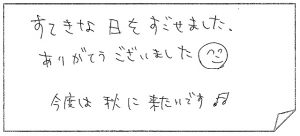 すてきな日をすごせました。
ありがとうございました
今度は秋に来たいです♫